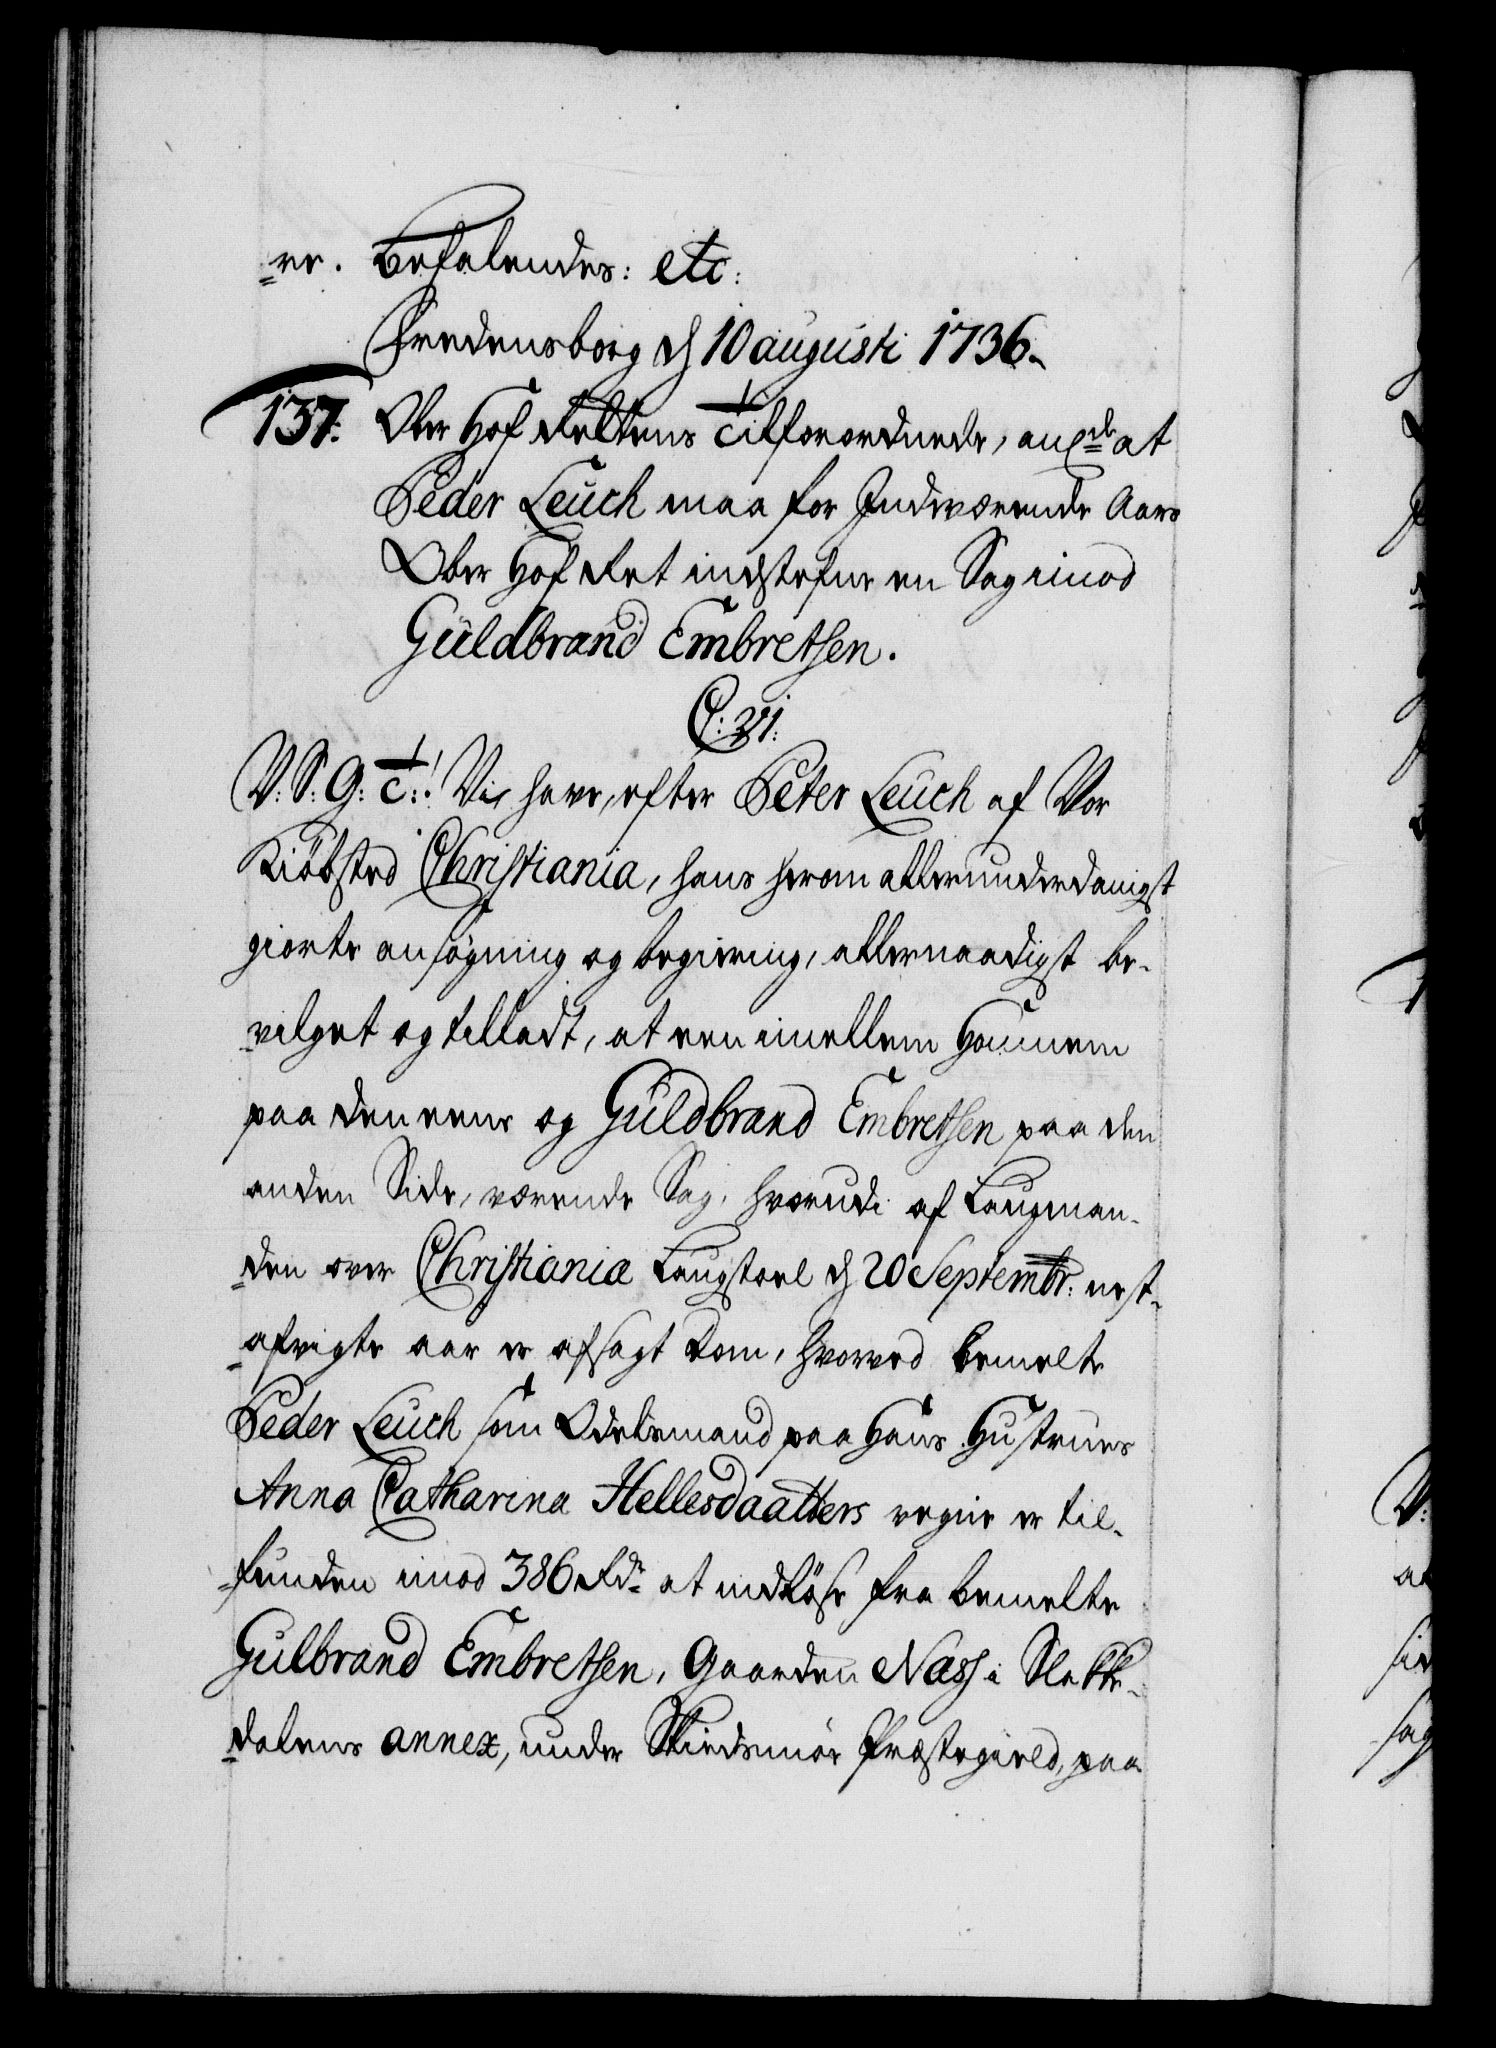 =re. Befalendes: etc:
Fredensborg d 10 augusti 1736.
137. Ober Hof Rettens Tilforordnede, ang at
Peder Leuch maa for Indeværende Aars
Ober Hof Ret indstefne en Sag imod
Guldbrand Embretsen.
C: VI.
V: S: G: T:! Vi have, efter Peter Leuch af Vor
Kiöbsted Christiania, hans herom allerunderdanigst
giorte ansøgning og begiering, allernaadigst be-
vilget og tilladt, at een imellem Hannem
paa den eene og Guldbrand Embretsen paa den
anden Side, værende Sag, hvorudi af Laugman-
=den over Christiania Laugstoel d 20 Septembr: nest-
=afvigte aar er afsagt Dom, hvorved bemelte
Peder Leuch som Odelsmand paa Hans Hustrues
Anna Catharina Hellesdaatters vegne er til-
=funden imod 386 Rdr at indløse fra bemelte
Gulbrand Embretsen, Gaarden Næss i Blakke-
=dalens annex, under Skiedsmoe Præstegield, paa